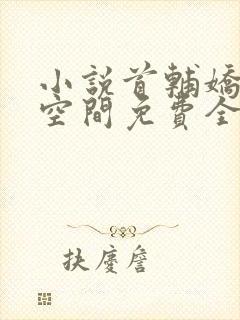 小説首輔嬌
空間免費全
扶慶詹